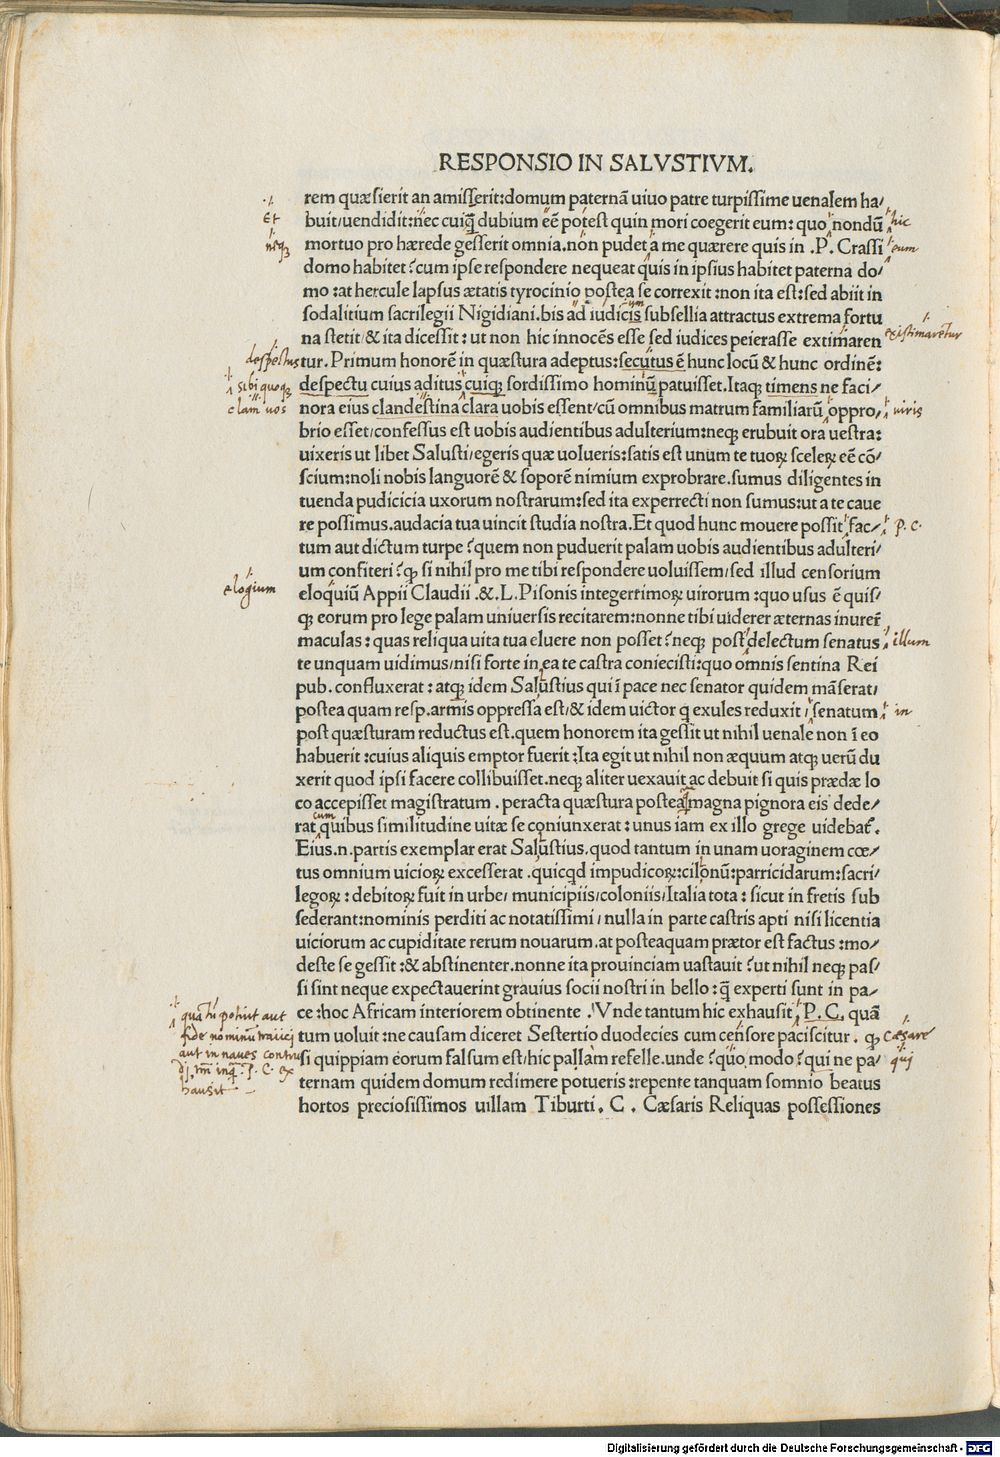 RESPONSIO IN SALVSTIVM.
rem quæsierit an amiserit:domum paternã uiuo patre turpissime uenalem ha/
buit/uendidit:nec cuiq̃ dubium eẽ potest quin mori coegerit eum: quo nondũ
mortuo pro hærede gesserit omnia.non pudet a me quærere quis in .P. Crassi
domo habitet?cum ipse respondere nequeat quis in ipsius habitet paterna do/
mo:at hercule lapsus ætatis tyrocinio postea se correxit:non ita est:sed abiit in
sodalitium sacrilegii Nigidiani.bis ad iudicis subsellia attractus extrema fortu
na stetit/& ita dicessit: ut non hic innocẽs esse sed iudices peierasse extimaren
tur. Primum honorẽ in quæstura adeptus:secutus ẽ hunc locũ & hunc ordinẽ:
despectu cuius aditus cuiq; sordissimo hominũ patuisset.Itaq; timens ne faci/
nora eius clandestina clara uobis essent/cũ omnibus matrum familiarũ oppro/
brio esset/confessus est uobis audientibus adulterium:neq; erubuit ora uestra:
uixeris ut libet Salusti/egeris quæ uolueris:satis est unum te tuoꝝ sceleꝝ eẽ cõ/
scium:noli nobis languorẽ & soporẽ nimium exprobrare.sumus diligentes in
tuenda pudicicia uxorum nostrarum:sed ita experrecti non sumus:ut a te caue
re possimus.audacia tua uincit studia nostra.Et quod hunc mouere possit fac/
tum aut dictum turpe?quem non puduerit palam uobis audientibus adulteri/
um confiteri?ꝙ si nihil pro me tibi respondere uoluissem/sed illud censorium
eloquiũ Appii Claudii .&.L.Pisonis integertimoꝝ uirorum:quo usus ẽ quis/
q; eorum pro lege palam uniuersis recitarem:nonne tibi uiderer æternas inurer̃
maculas: quas reliqua uita tua eluere non posset?neq; post delectum senatus
te unquam uidimus/nisi forte in ea te castra coniecisti:quo omnis sentina Rei
pub. confluxerat: atq; idem Salustius qui ĩ pace nec senator quidem mãserat/
postea quam resp.armis oppressa est/& idem uictor q exules reduxit/senatum
post quæsturam reductus est.quem honorem ita gessit ut nihil uenale non ĩ eo
habuerit:cuius aliquis emptor fuerit:Ita egit ut nihil non æquum atq; uerũ du
xerit quod ipsi facere collibuisset.neq; aliter uexauit ac debuit si quis prædæ lo
co accepisset magistratum. peracta quæstura postea magna pignora eis dede/
rat quibus similitudine uitæ se coniunxerat: unus iam ex illo grege uidebat̃.
Eius.n.partis exemplar erat Salustius.quod tantum in unam uoraginem cœ/
tus omnium uicioꝝ excesserat.quicqd impudicoꝝ:cilonũ:parricidarum:sacri/
legoꝝ: debitoꝝ fuit in urbe/ municipiis/coloniis/Italia tota: sicut in fretis sub
sederant:nominis perditi ac notatissimi/nulla in parte castris apti nisi licentia
uiciorum ac cupiditate rerum nouarum.at posteaquam prætor est factus:mo/
deste se gessit:& abstinenter.nonne ita prouinciam uastauit?ut nihil neq; pas/
si sint neque expectauerint grauius socii nostri in bello:q̃ experti sunt in pa/
ce:hoc Africam interiorem obtinente .Vnde tantum hic exhausit.P.C. quã
tum uoluit:ne causam diceret Sestertio duodecies cum censore paciscitur. ꝙ
si quippiam eorum falsum est/hic pallam refelle.unde?quo modo?qui ne pa/
ternam quidem domum redimere potueris:repente tanquam somnio beatus
hortos preciosissimos uillam Tiburti. C . Cæsaris Reliquas possessiones
Et
neq;
hic
eum
existimaretur
despectus
sibi quoq;
clam uos
viris
p. c.
elogium
illum
in
cum
Cæsare
qui
fide nominũ traiici
aut in naues
hausit
Digitalisierung gefördert durch die Deutsche Forschungsgemeinschaft - DFG